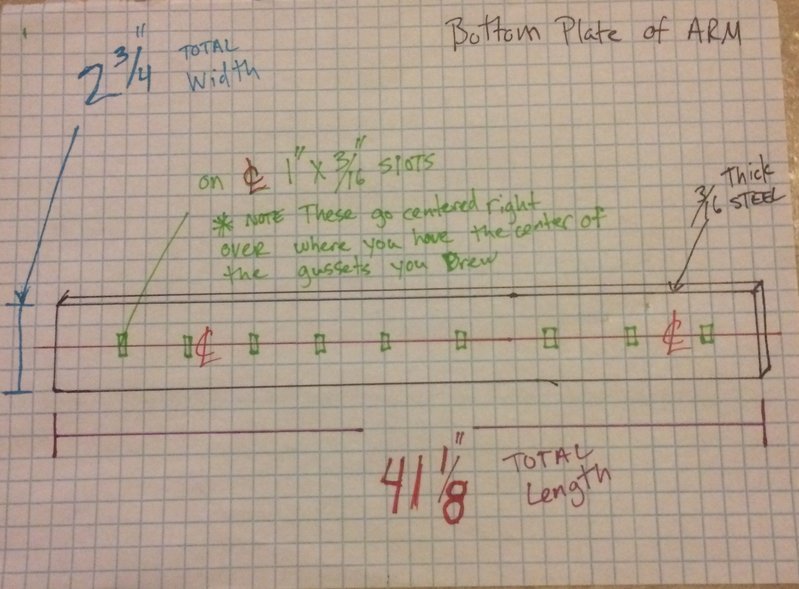 Bottom Plate of ARM
2 3/4" TOTAL
Width
on ℄ 1" X 3/16" SLOTS
* NOTE These go centered right
over where you have the center of
the gussets you Drew
3/16 Thick
STEEL
℄ ℄
41 1/8" TOTAL
Length